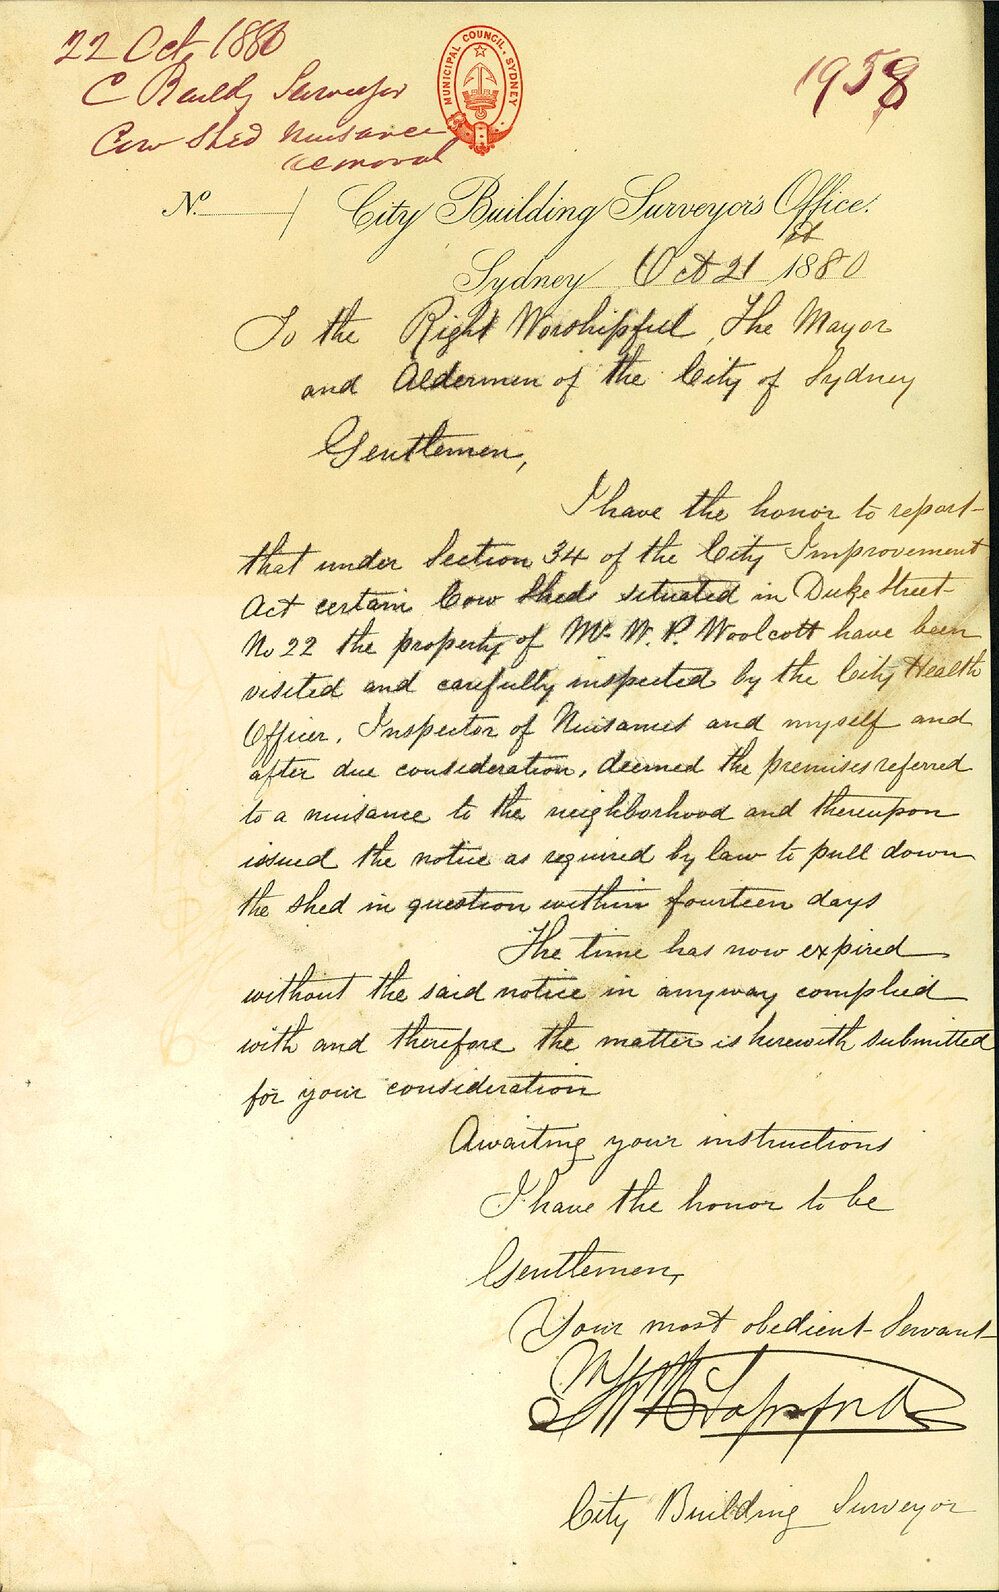 22 Oct 1880
C Buildg Surveyor
Cow Shed Nuisance
removal
MUNICIPAL COUNCIL. SYDNEY
1958
No. City Building Surveyor's Office.
Sydney Oct 21st 1880
To the Right Worshipful, The Mayor
and Aldermen of the City of Sydney
Gentlemen,
I have the honor to report
that under Section 34 of the City Improvement
Act certain Cow Sheds situated in Duke Street
No 22 the property of Mr W. P. Woolcott have been
visited and carefully inspected by the City Health
Officer, Inspector of Nuisances and myself and
after due consideration, deemed the premises referred
to a nuisance to the neighborhood and thereupon
issued the notice as required by law to pull down
the shed in question within fourteen days
The time has now expired
without the said notice in anyway complied
with and therefore the matter is herewith submitted
for your consideration
Awaiting your instructions
I have the honor to be
Gentlemen,
Your most obedient Servant
City Building Surveyor